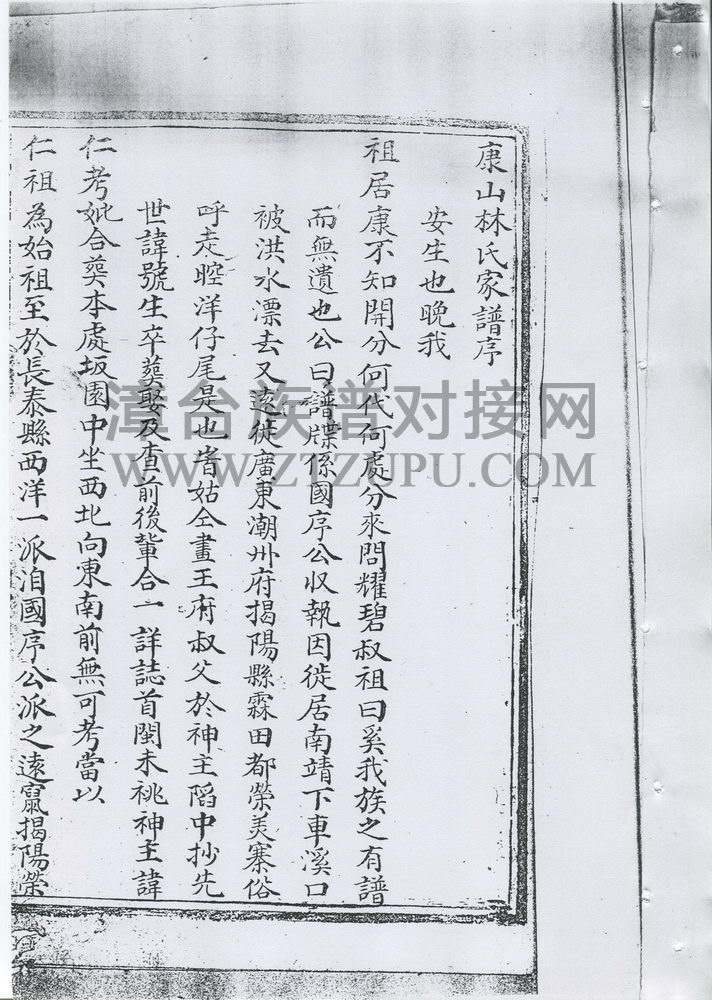 康山林氏家譜序
安生也晚我
祖居康不知開分何代何處分來問耀碧叔祖曰奚我族之有譜
而無遺也公曰譜牒係國序公収執因徙居南靖下車溪口
被洪水漂去又逶徙廣東潮州府揭陽縣霖田都榮美寨俗
呼走腔洋仔尾是也昔姑仝畫王府叔父於神主䧟中抄先
世諱號生卒葬娶及查前後輩合一詳誌首閩未祧神主諱
仁考妣合葬本處坂園中坐西北向東南前無可考當以
仁祖為始祖至於長泰縣西洋一派洎國序公派之遠竄揭陽榮
漳台族谱对接网
WWW.ZTZUPU.COM